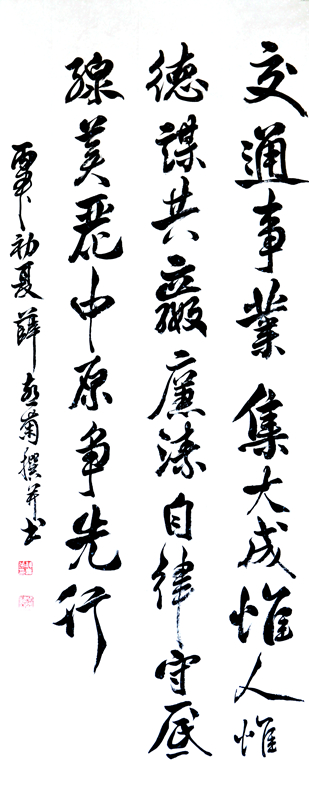 交通事業集大成惟人惟
德謀共贏廉潔自律守底
線美麗中原争先行
丙申初夏薛菊撰并书